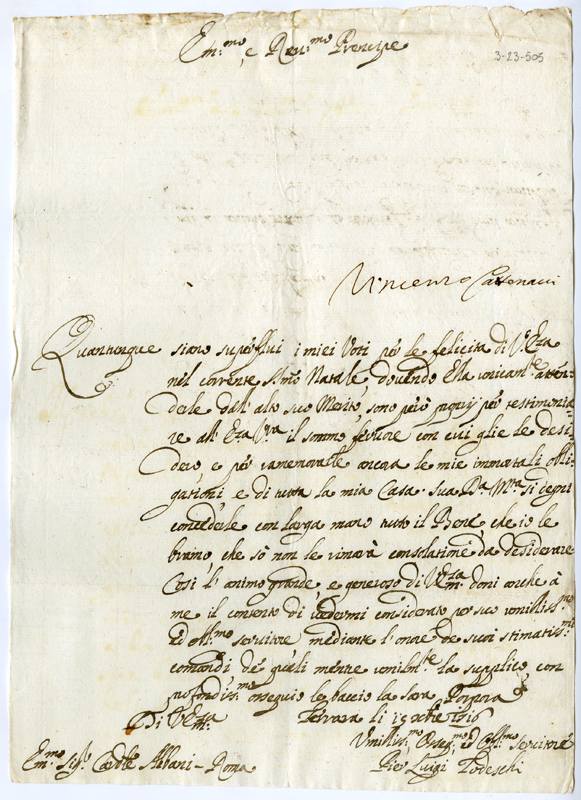 Em.mo, e Reu.mo Prencipe
3-23-505
Vincenzo Cattenacci
Quantunque siano superflui i miei Voti per le felicità di V: Eza
nel corrente SSmo Natale, douendo Ella unicam.te atten-
derle dall'alto suo Merito, sono però propry per testimonia-
re all' Eza V.ra il sommo feruore con cui glie le desi-
dero, e per ramemorarle ancora le mie immortali obli-
gationi, e di tutta la mia Casa. Sua D.a M.tà si degni
concederle con larga mano tutto il Bene, che io le
bramo, che sò non le rimarrà consolationi da desiderare
Così l'animo grande, e generoso di V. Eza doni anche à
me il contento di vedermi considerato per suo umiliss.mo
ed obl.mo seruitore mediante l'onore de suoi stimatiss.mi
comandi, de' quali mentre umilm.te la supplico, con
profondiss.mo ossequio le baccio la Sacra Porpora
Di V. Em.za Ferrara li 19 xbre 1716
Umiliss.mo Osseq.mo ed Obl.mo Seruitore
Em.mo Sig.r Cardle Albani - Roma
Pier Luigi Todeschi